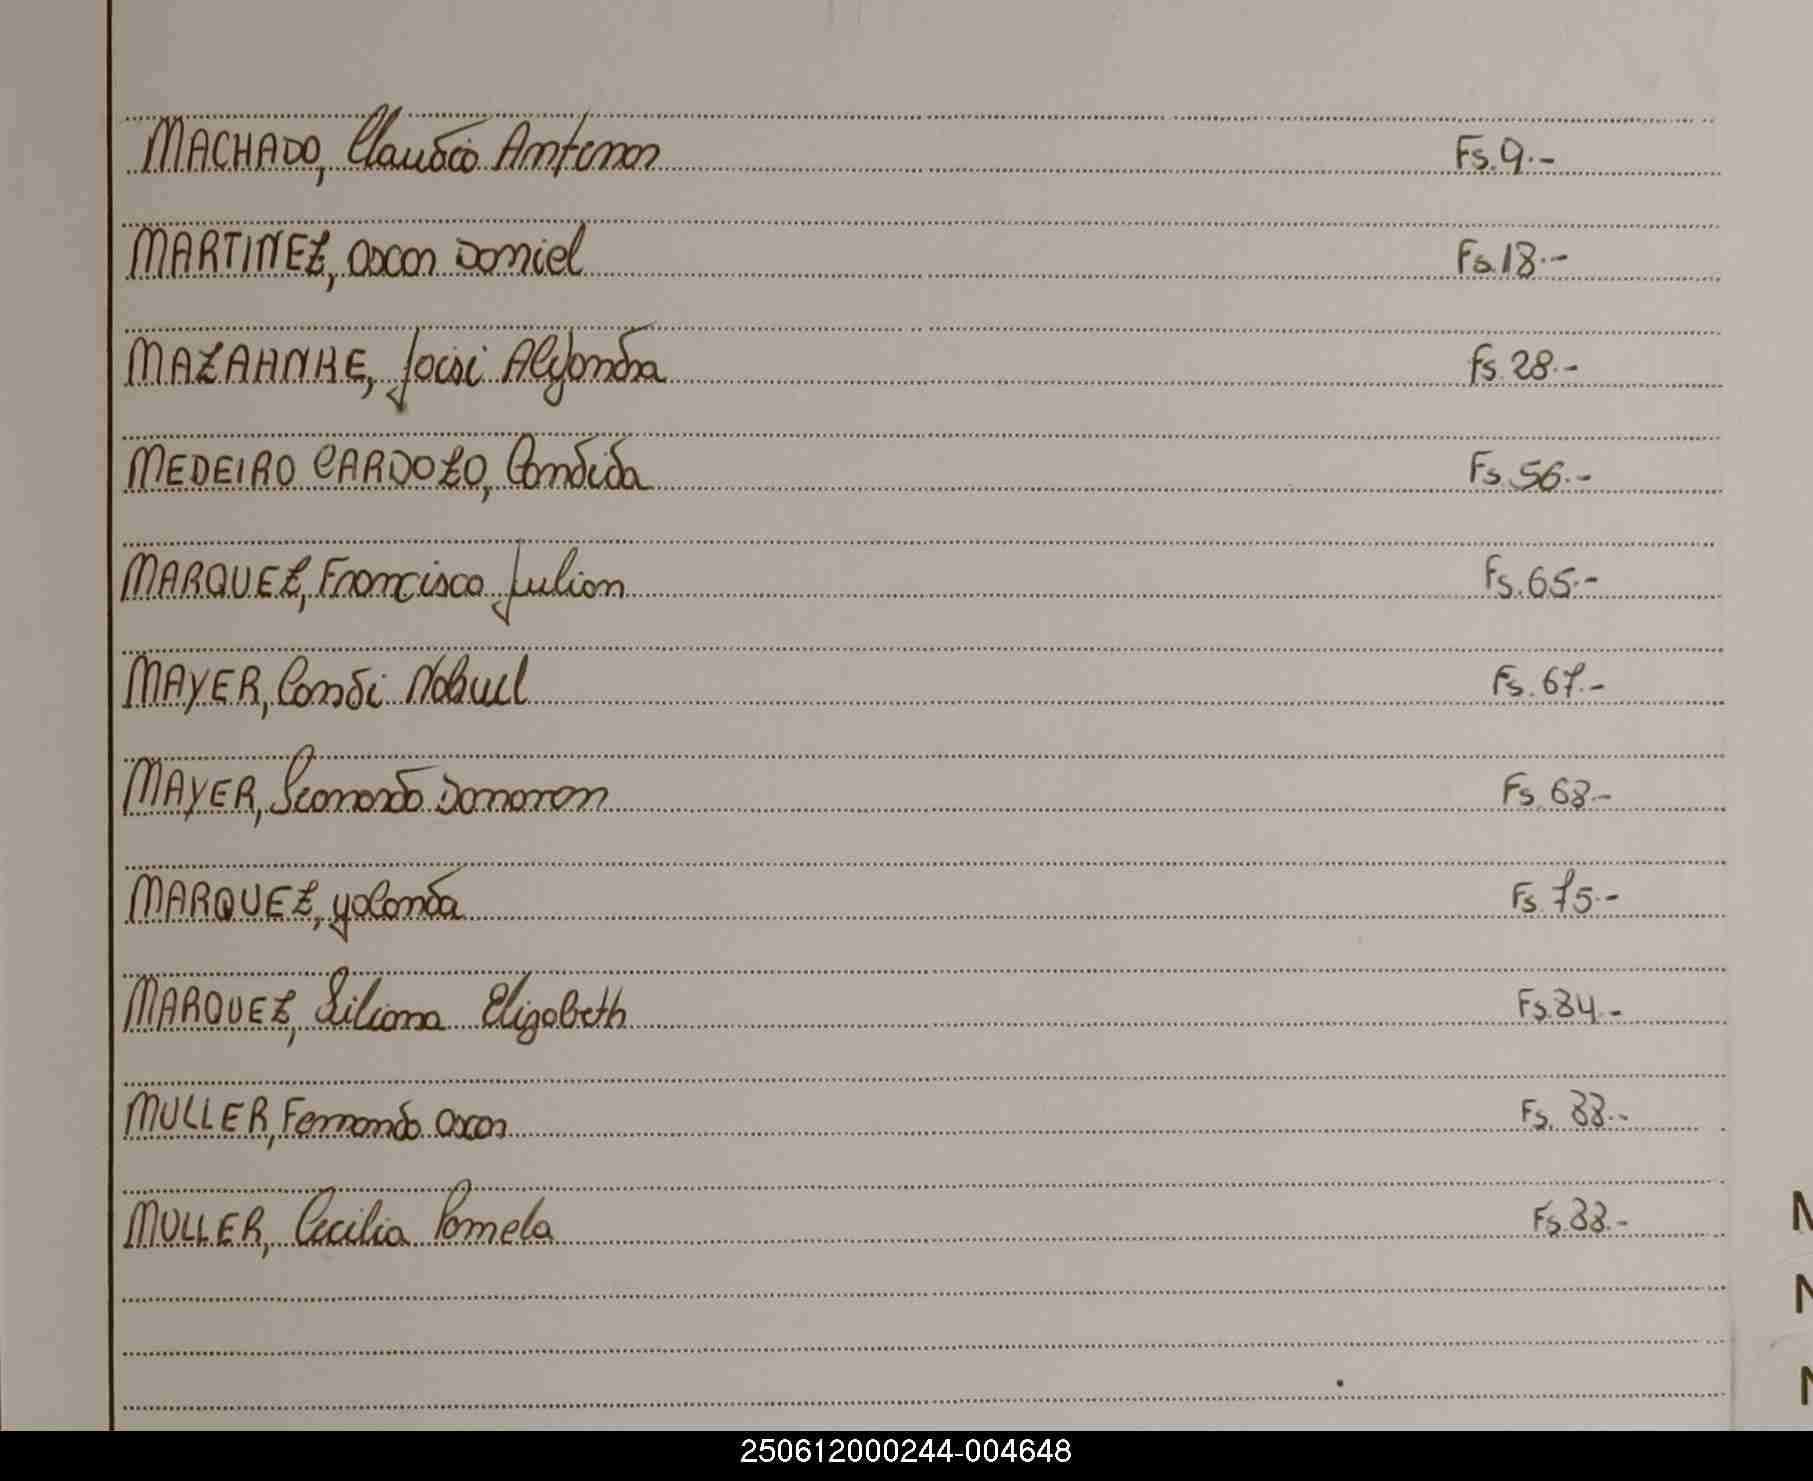 MACHADO, Claudio Antenor Fs. 9.-
MARTINEZ, Oscar Daniel Fs. 18.-
MAZAHNKE, Joisi Alejandra Fs. 28.-
MEDEIRO CARDOZO, Candida Fs. 56.-
MARQUEZ, Francisco Julian Fs. 65.-
MAYER, Candi Nahuel Fs. 67.-
MAYER, Leonardo Damaron Fs. 68.-
MARQUEZ, Yolanda Fs. 75.-
MARQUEZ, Liliana Elizabeth Fs. 84.-
MULLER, Fernando Oscar Fs. 88.-
MULLER, Cecilia Pamela Fs. 88.-
250612000244-004648